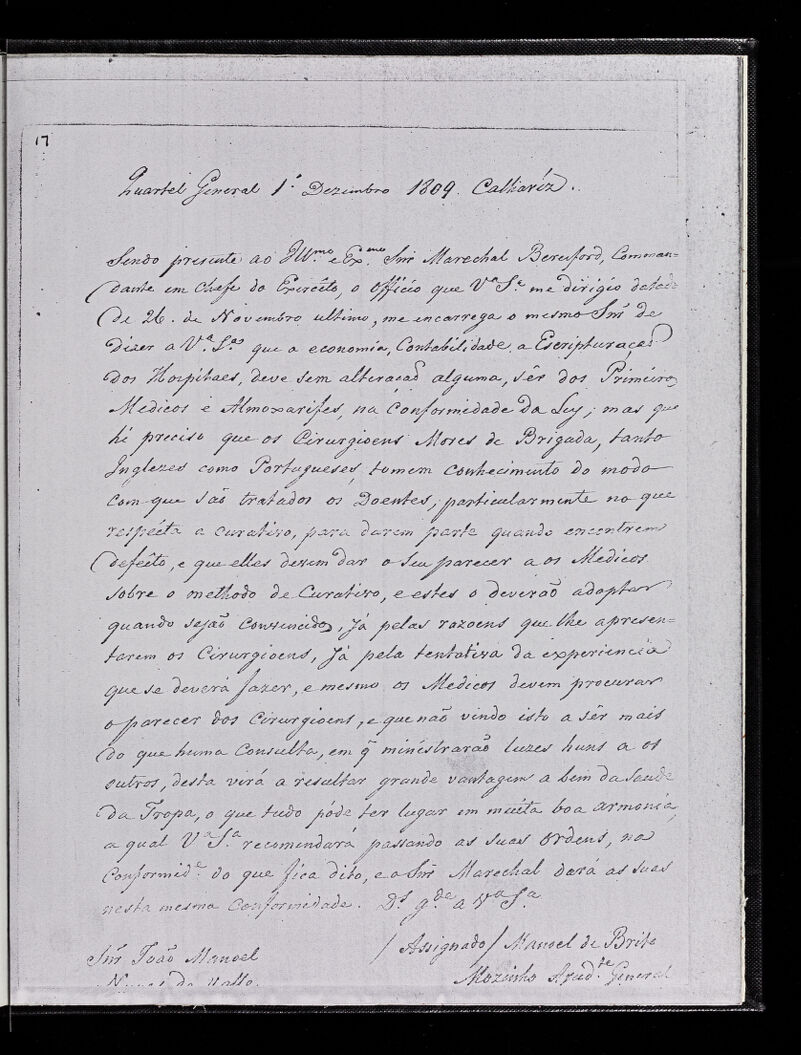 17
Quartel General 1º Dezembro 1809. Calhariz.
Sendo presente ao Illmo e Exmo Snr Marechal Beresford, Comman-
dante em Chefe do Exercîto, o Officio que Vª Sª me dirigio datado
de 26. de Novembro ultimo, me encarrega o mesmo Snr de
dizer a Vª Sª que a economia, Contabilidade, a Escripturaçaõ
dos Hospitaes, deve sem alteraçaõ alguma, sêr dos Primeiros
Medicos e Almoxarifes, na Conformidade da Ley; mas que
hé preciso que os Cirurgioens Mores de Brigada, tanto
Inglezes como Portugueses, tomem conhecimento do modo
com que saõ tratados os Doentes, particularmente no que
respécta a curativo, para darem parte quando encontrem
defeîto, e que elles devem dar o seu parecer a os Medicos
sobre o methodo de Curativo, e estes o deveráõ adoptar
quando sejaõ convencidos, já pelas razoens que lhe apresen-
tarem os Cirurgioens, já pela tentativa da experiencia
que se deverá fazer, e mesmo os Medicos devem procurar
o parecer dos Cirurgioens, e que naõ vindo isto a sêr mais
do que huma Consulta, em q̃ ministraraõ luzes huns a os
outros, desta virá a resultar grande vantagem a bem da Saude
da Tropa, o que tudo póde ter lugar em muita boa armonia,
a qual Vª Sª recomendará passando as suas ordens, na
Conformide do que fica dito, e o Snr Marechal dará as suas
nesta mesma Conformidade. Ds gde a Vª Sª
/ Assignado / Manoel de Brito
Snr Joaõ Manoel
Mozinho Ajudte General
Nunes do Valle.